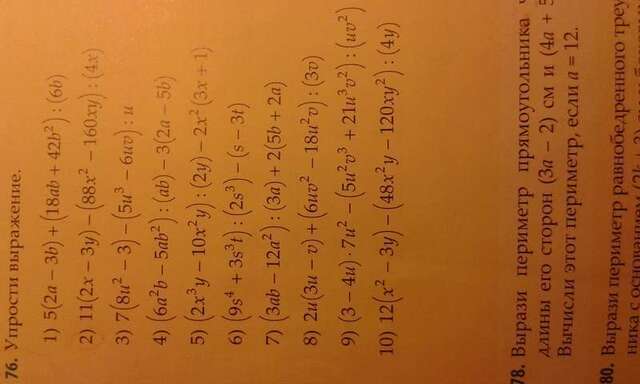 76. Упрости выражение.
1) 5(2a − 3b) + (18ab + 42b²) : (6b)
2) 11(2x − 3y) − (88x² − 160xy) : (4x)
3) 7(8u² − 3) − (5u³ − 6uv) : u
4) (6a²b − 5ab²) : (ab) − 3(2a − 5b)
5) (2x³y − 10x²y) : (2y) − 2x²(3x + 1)
6) (9s⁴ + 3s³t) : (2s³) − (s − 3t)
7) (3ab − 12a²) : (3a) + 2(5b + 2a)
8) 2u(3u − v) + (6uv² − 18u²v) : (3v)
9) (3 − 4u) · 7u² − (5u²v³ + 21u³v²) : (uv²)
10) 12(x² − 3y) − (48x²y − 120xy²) : (4y)
78. Вырази периметр прямоугольника
длины его сторон (3a − 2) см и (4a + 5
Вычисли этот периметр, если a = 12.
80. Вырази периметр равнобедренного треу
ника с